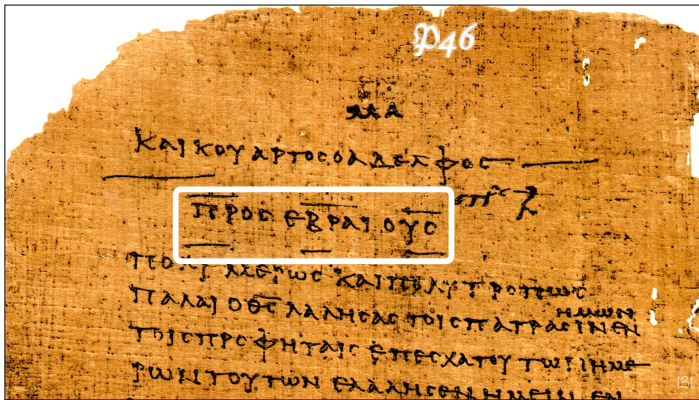 𝔓46
ΚΑΙ ΚΟΥΑΡΤΟϹ Ο ΑΔΕΛΦΟϹ
ΠΡΟϹ ΕΒΡΑΙΟΥϹ
ΠΟΛΥΜΕΡΩϹ ΚΑΙ ΠΟΛΥΤΡΟΠΩϹ
ΗΜΩΝ
ΠΑΛΑΙ Ο Θ̅Ϲ̅ ΛΑΛΗϹΑϹ ΤΟΙϹ ΠΑΤΡΑϹΙΝ ΕΝ
ΤΟΙϹ ΠΡΟΦΗΤΑΙϹ ΕΠ ΕϹΧΑΤΟΥ ΤΩΝ ΗΜΕ
ΡΩΝ ΤΟΥΤΩΝ ΕΛΑΛΗϹΕΝ ΗΜΕΙΝ ΕΝ
131